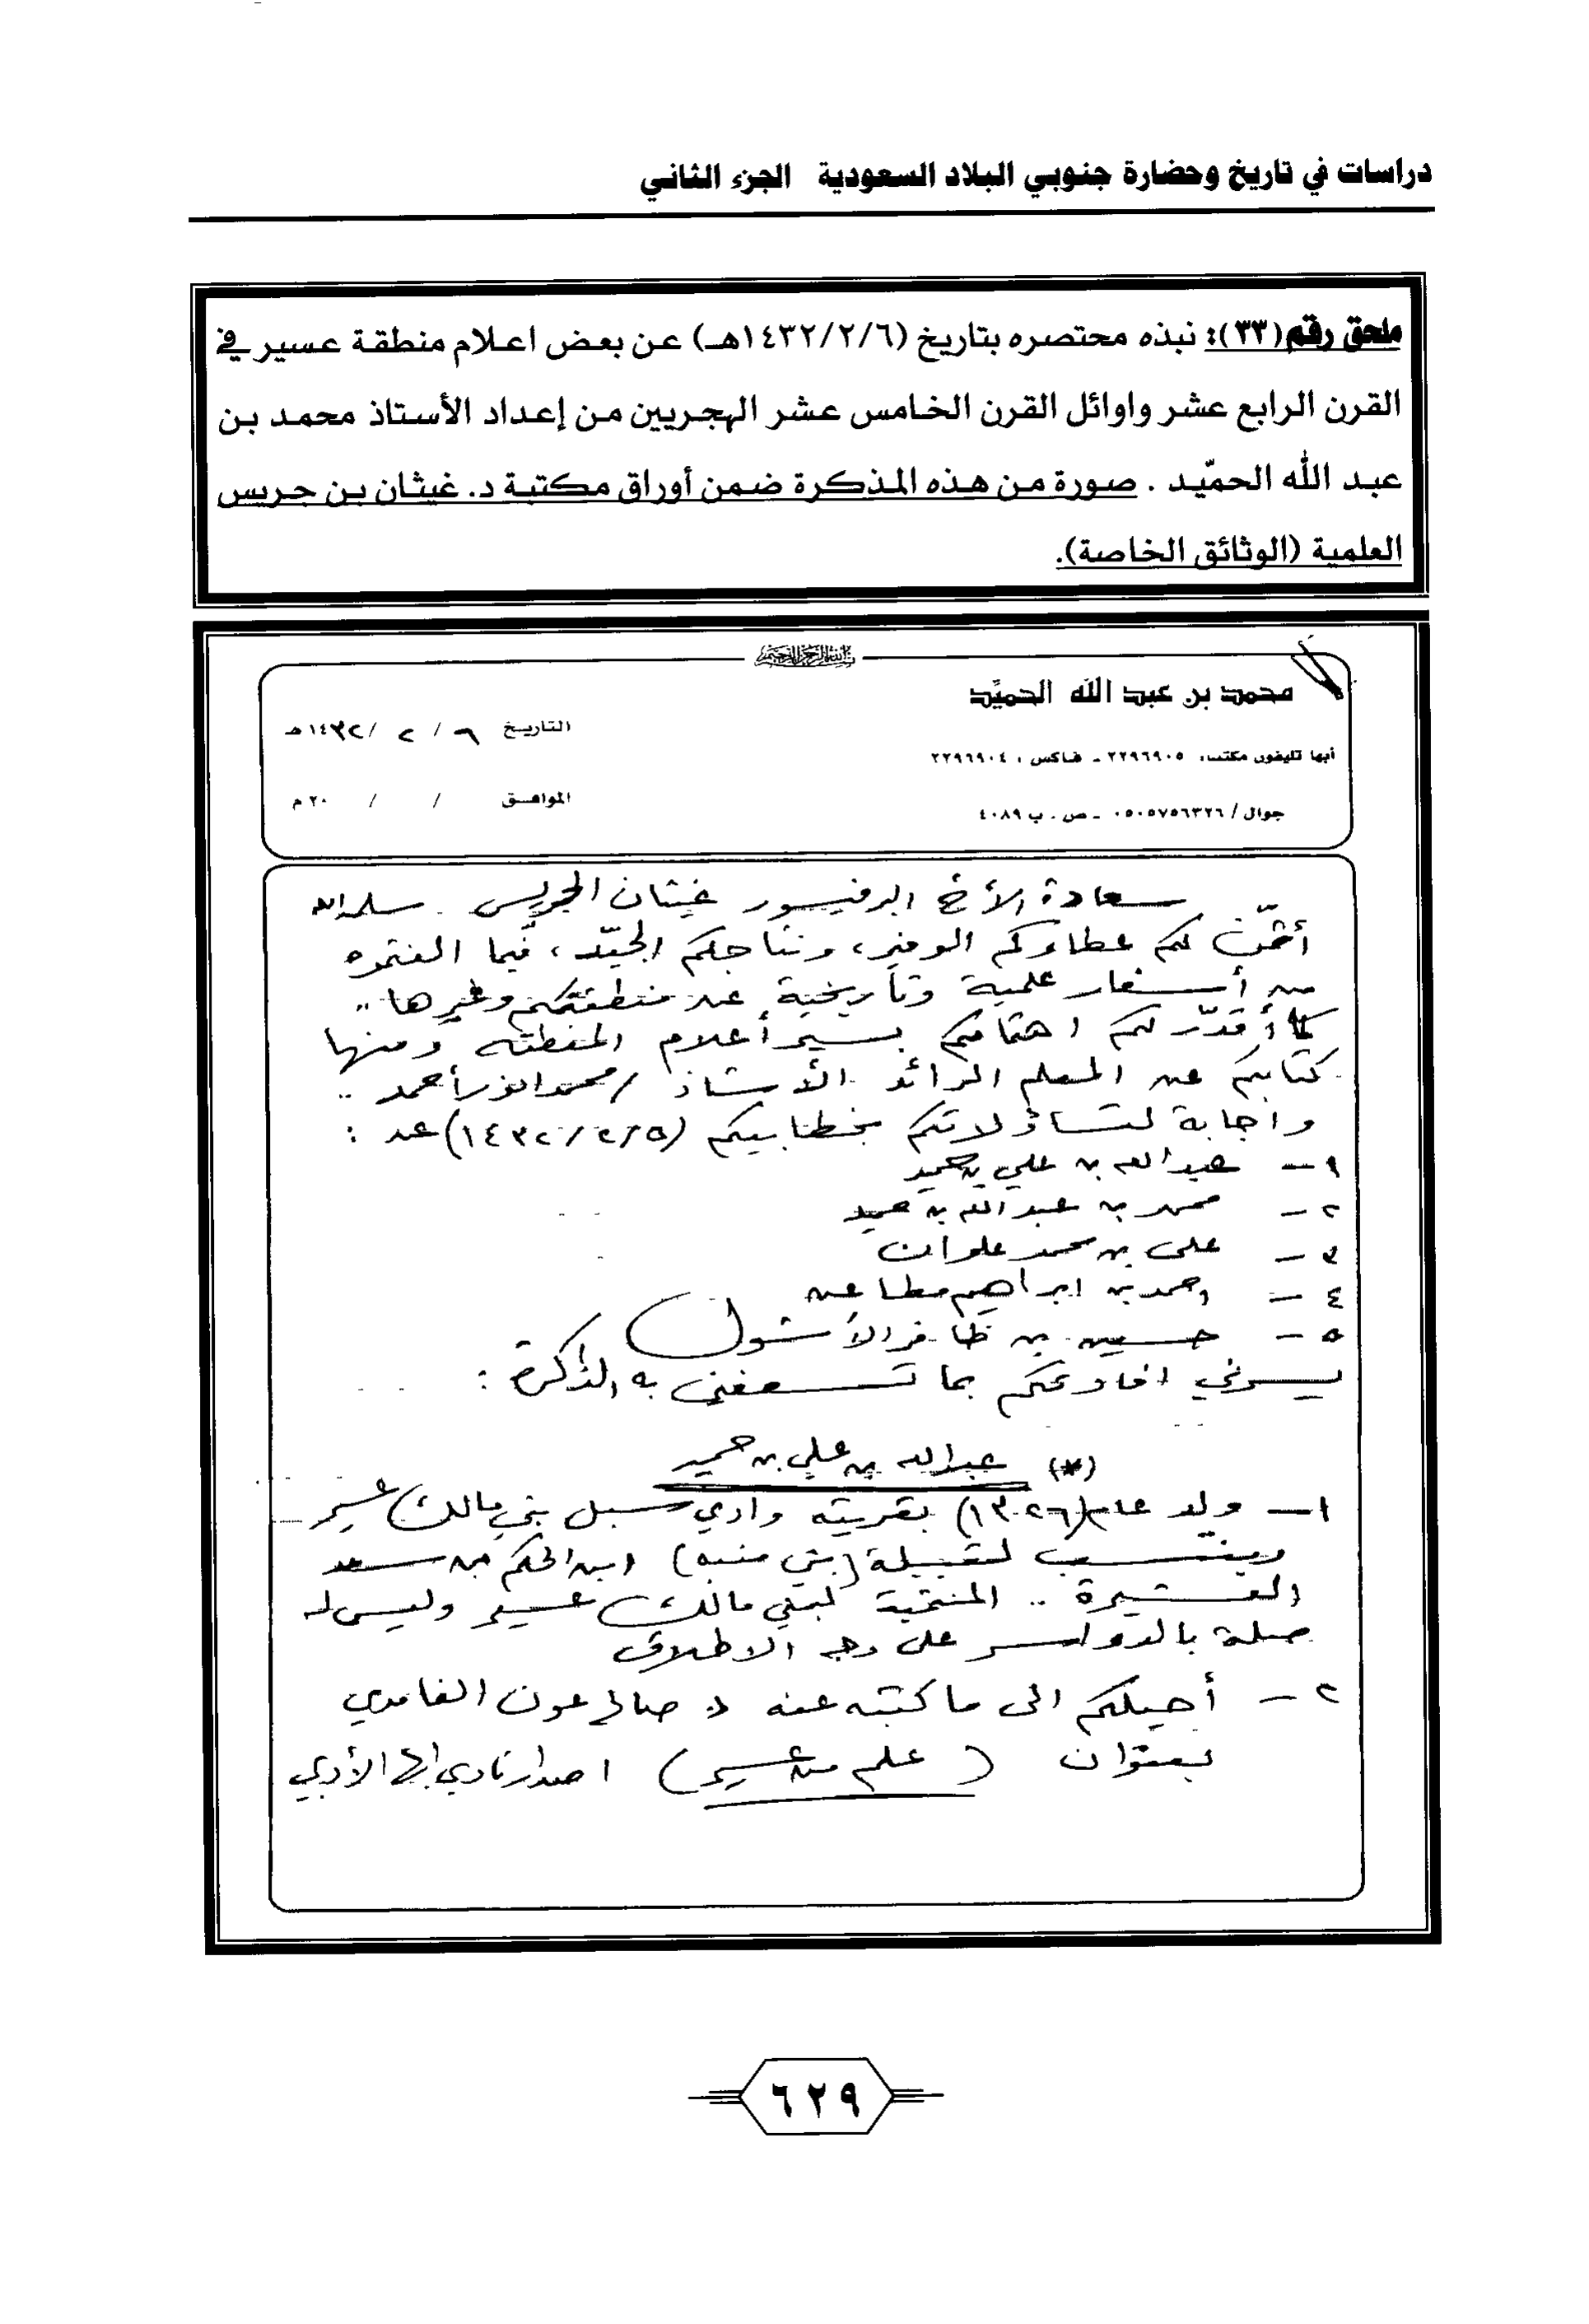 دراسات في تاريخ وحضارة جنوبي البلاد السعودية الجزء الثاني
ملحق رقم (٣٣): نبذه محتصره بتاريخ (١٤٣٢/٢/٦هـ) عن بعض اعلام منطقة عسير في
القرن الرابع عشر واوائل القرن الخامس عشر الهجريين من إعداد الأستاذ محمد بن
عبد الله الحميّد . صورة من هذه المذكرة ضمن أوراق مكتبة د. غيثان بن جريس
العلمية (الوثائق الخاصة).
بسم الله الرحمن الرحيم
محمد بن عبد الله الحميّد
التاريخ ٦ / ٢ / ١٤٣٢هـ
أبها تليفون مكتب: ٢٢٩٦٩٠٥ - فاكس : ٢٢٩٦٩٠٤
الموافق / / ٢٠م
جوال / ٠٥٠٥٧٥٦٣٢٦ - ص . ب ٤٠٨٩
سعادة الأخ البرفيسور غيثان الجريس سلمه الله
أثمّن لكم عطاؤكم الوفير، ونتاجكم الجيّد، فيما
من أسفار علمية وتأريخية عن منطقتكم وغيرها ..
كما أقدّر لكم اهتمامكم بسير أعلام المنطقة ومنها
كتابكم عن المعلم الرائد الأستاذ / محمد انور أحمد ..
واجابة لتساؤلاتكم بخطابيكم (١٤٣٢/٢/٥) عن :
١ - عبدالله بن علي بن حميد
٢ - محمد بن عبدالله بن حميد
٣ - علي بن محمد علوان
٤ - احمد بن ابراهيم مطاعن
٥ - حسين بن ظافر الأشول
يسرني افادتكم بما تسعفني به الذاكرة :
(*) عبدالله بن علي بن حميد
١ - ولد عام (١٣٢٦) بقريته وادي سبل بني مالك عسير
وينتسب لقبيلة (بني منبه) ابن الحكم بن سعد
العشيرة .. المنتمية لبني مالك عسير وليس له
صلة بالدواسر على وجه الاطلاق
٢ - أحيلكم الى ما كتبه عنه د. صالح عون الغامدي
بعنوان ( علم من عسير ) اصدار نادي ابها الأدبي
٦٢٩